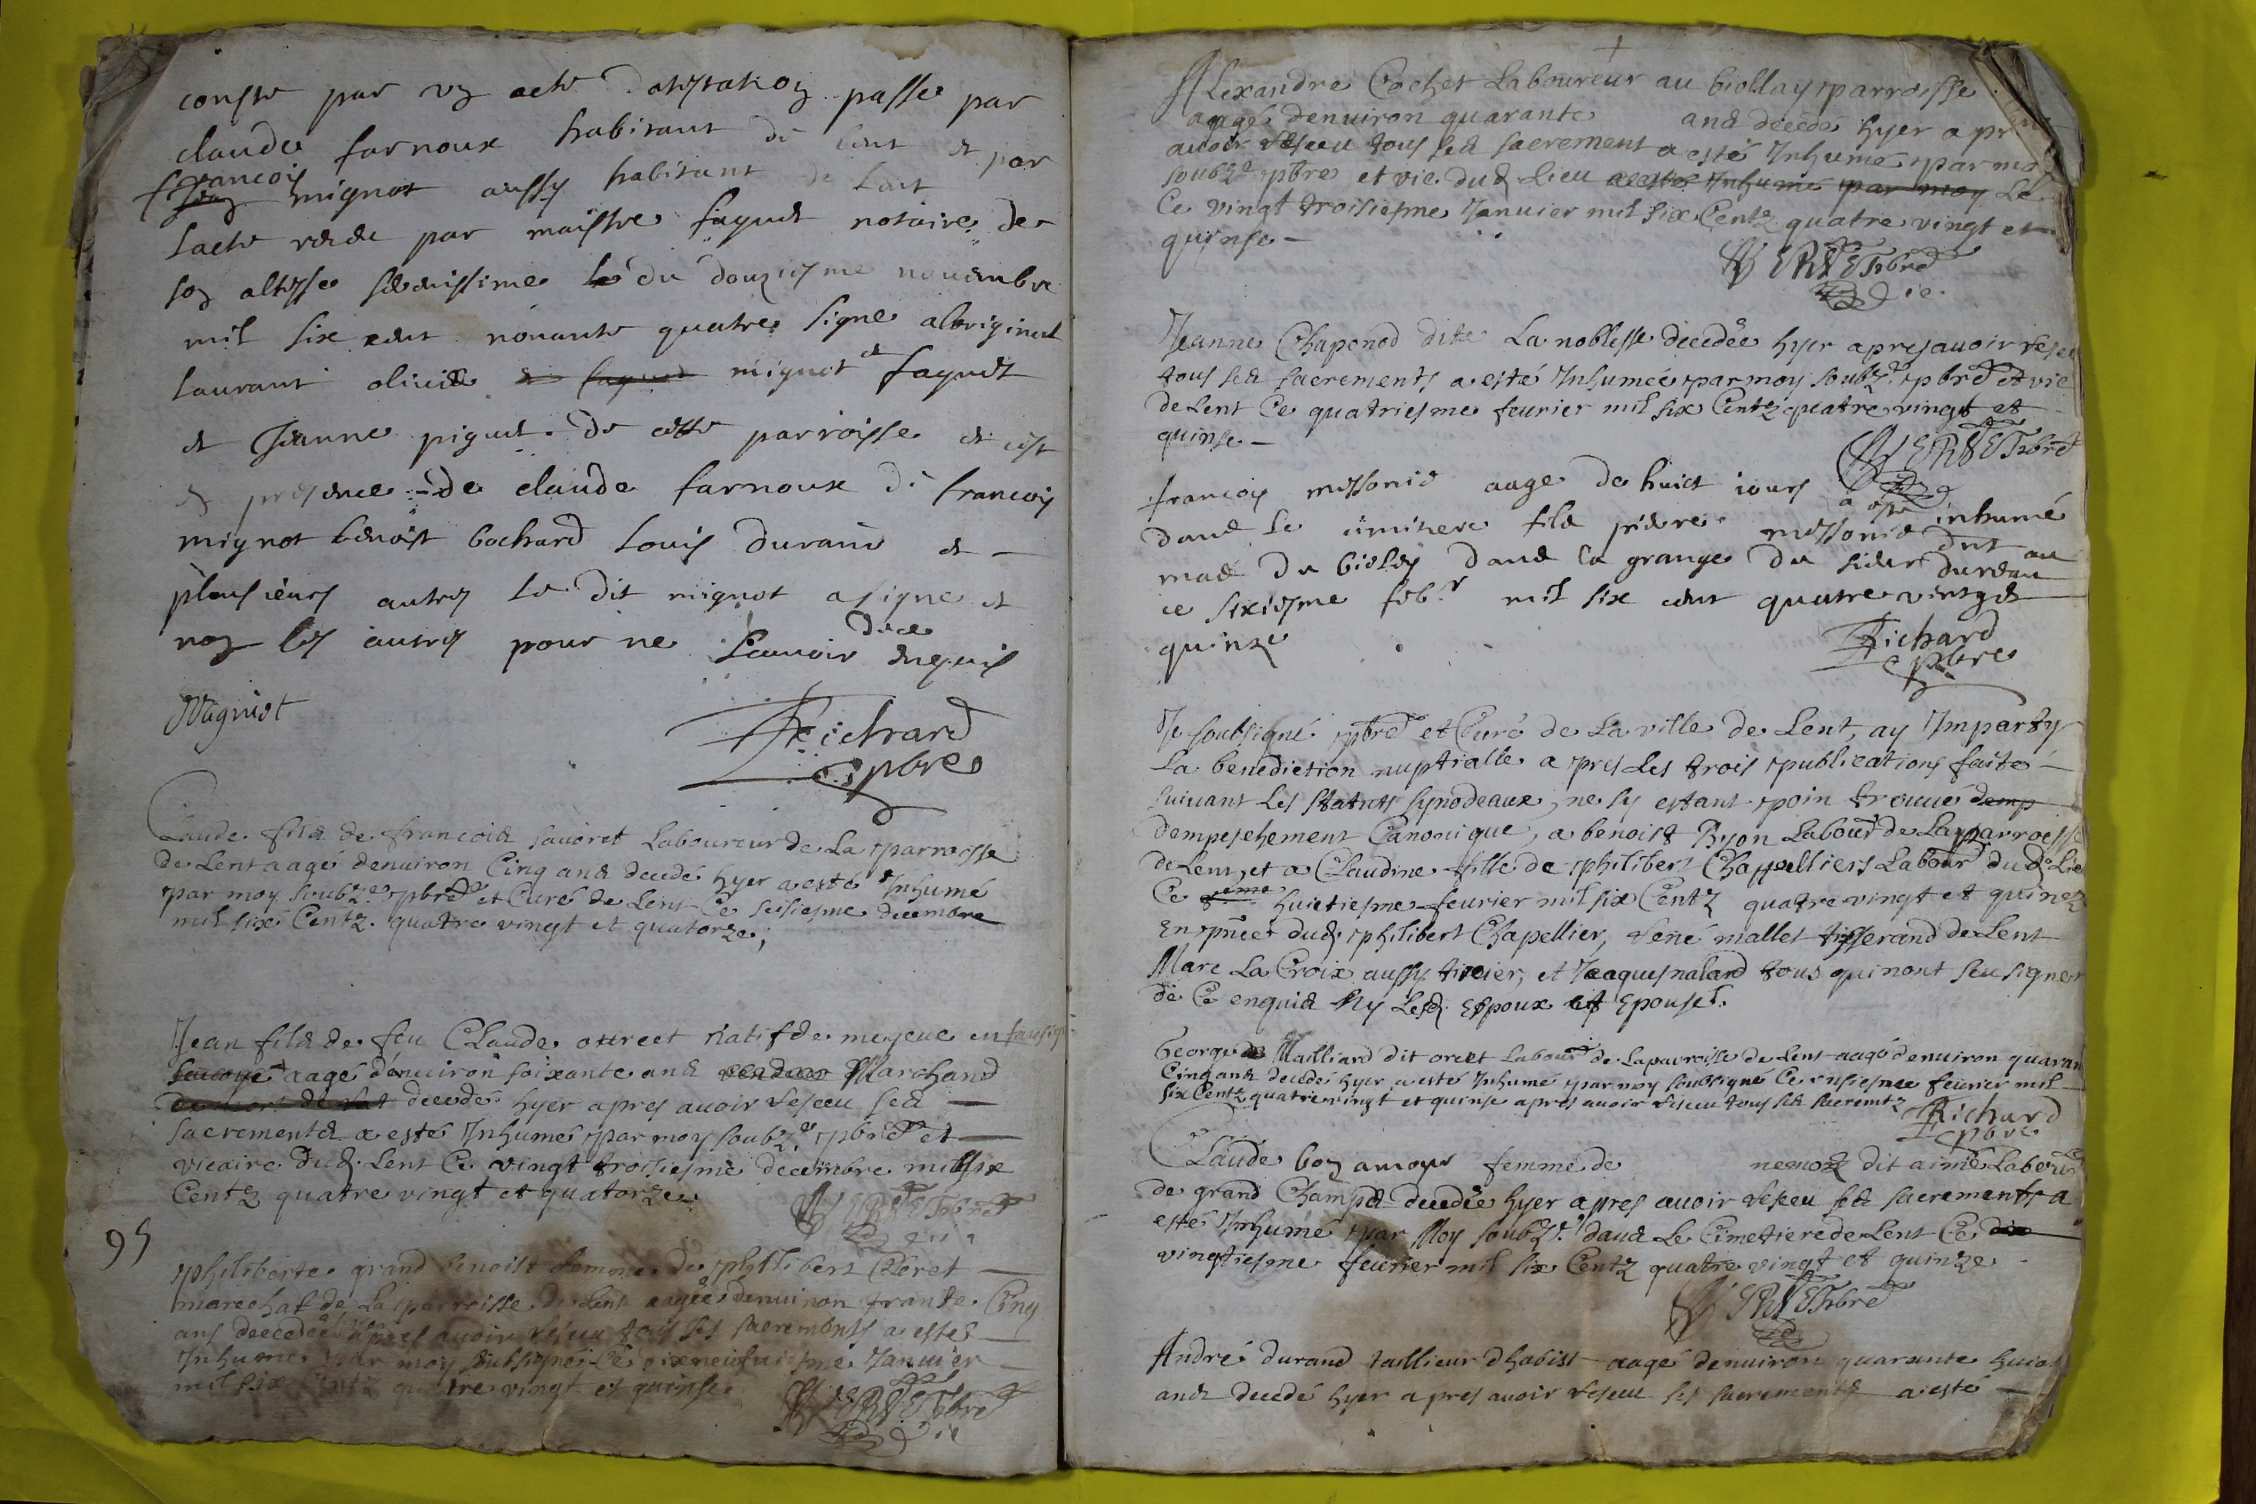 conste par un acte datestation passe par
claude farnoux habitant de lent et par
francois mignot aussy habitant de lent
lacte reseu par maistre faguet notaire de
son altesse serenissime du douziesme novembre
mil six cent nonante quatre signe aloriginal
laurant olivier et faguet mignot et faguet
et Jeanne piguet de cette parroisse et cest
en presence de claude farnoux de francois
mignot benoist bochard Louis durand et
plusieurs autres le dit mignot a signe et
non les autres pour ne scavoir de ce enquis
Mignot
Richard
pbre
Claude fils de francois savoret Laboureur de La parroisse
de Lent aagé denuiron Cinq ans decedé hyer a esté Inhumé
par moy soubz.é pbre et Curé de Lent Ce seisiesme decembre
mil six Centz quatre vingt et quatorze
Jean fils de feu Claude natif de en
aagé denuiron soixante ans Marchand
decedé hyer apres avoir reseeu ses
sacrements a esté Inhumé par moy soubz.é pbre et
vicaire dud. Lent Ce vingt troisiesme decembre mil six
Centz quatre vingt et quatorze
95
philiberte grand benoist femme de phillibert
marechal de La parroisse de Lent aagée denuiron trante Cinq
ans decedée apres avoir reseu tous ses sacrements a esté
Inhumé par moy subsigné Ce dixneufuiesme Januier
mil six Centz quatre vingt et quinse
Alexandre Cochet Laboureur au biollay parroisse
aagé denuiron quarante ans decedé hyer apres
avoir reseeu tous ses sacrement a esté Inhumé par moy
soubz.é pbre et vic. dud. Lieu a esté Inhumé par moy Le
Ce vingt troisiesme Januier mil six Centz quatre vingt et
quinse
Jeanne Chaponod dite La noblesse decedée hyer apres avoir reseu
tous ses sacrements a esté Inhumée par moy soubz.é pbre et vic
de Lent Ce quatriesme feurier mil six Centz quatre vingt et
quinse
francois messonie aage de huict jours a este inhumé
dans le cimitiere fils pierre messonie dut au
mas du bioley dans la grange du sieur dureau
ce sixiesme feb.r mil six cent quatre vingt et
quinze
Richard
pbre
Je soubsigné pbre et Curé de La ville de Lent, ay Imparty
La benediction nuptialle a pres Les trois publications faite
suivant Les statuts synodeaux, ne sy estant poin trouué demp
dempeschement Canonique, a benoist Ryon Labour de La parroesse
de Lent, et a Claudine fille de philibert Chappelliers Labour dud. Lie
Ce huictiesme feurier mil six Centz quatre vingt et quinez
En pnce dud. philibert Chapellier, René mallet tisserand de Lent
Marc La Croix aussy tixier, et Jaaques nalard tous qui nont seu signer
de Ce enquis Ny Lesd. Espoux et Epouse.
George Mailliard dit Labour de La parroisse de Lent aagé denuiron quaran
Cinq ans decedé hyer a esté Inhumé par moy soubsigné Ce unsiesme feurier mil
six Centz quatre vingt et quinse apres avoir reseu tous ses sacremtz
Richard
pbre
Claude bon amour femme de dit aimé Labour
de grand Champs decedée hyer apres avoir reseeu ses sacrements a
esté Inhumé par Moy soubz.é dans Le Cimetiere de Lent Ce dix
vingtiesme feurier mil six Centz quatre vingt et quinze
André durand taillieur dhabist aagé denuiron quarante huict
ans decedé hyer apres avoir reseeu ses sacrements a esté